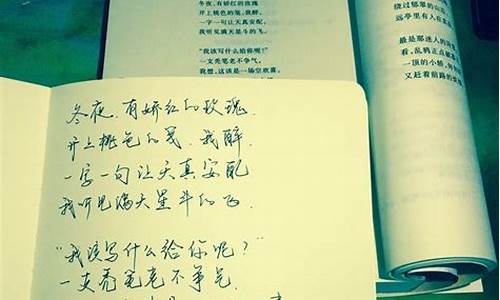 冬夜，有娇红的玫瑰
并上桃色的笺，我醉，
一字一句让天真安配，
我听见满天星斗的飞。
“我该写什么给你呢？”
一支秃笔老不争气，
我想，这该是一场空欢喜，
绕过郁翠的山
远亭里有人在
最是那迷人的
看，乱鸦正点破
一顶的小轿，
又赶着前路的
冬夜，有娇红的玫瑰，
并上桃色的笺，我醉，
一字一句让天真安配
我听见满天星斗的飞.
“我该写什么给你呢？”
一支秃笔老不争气.